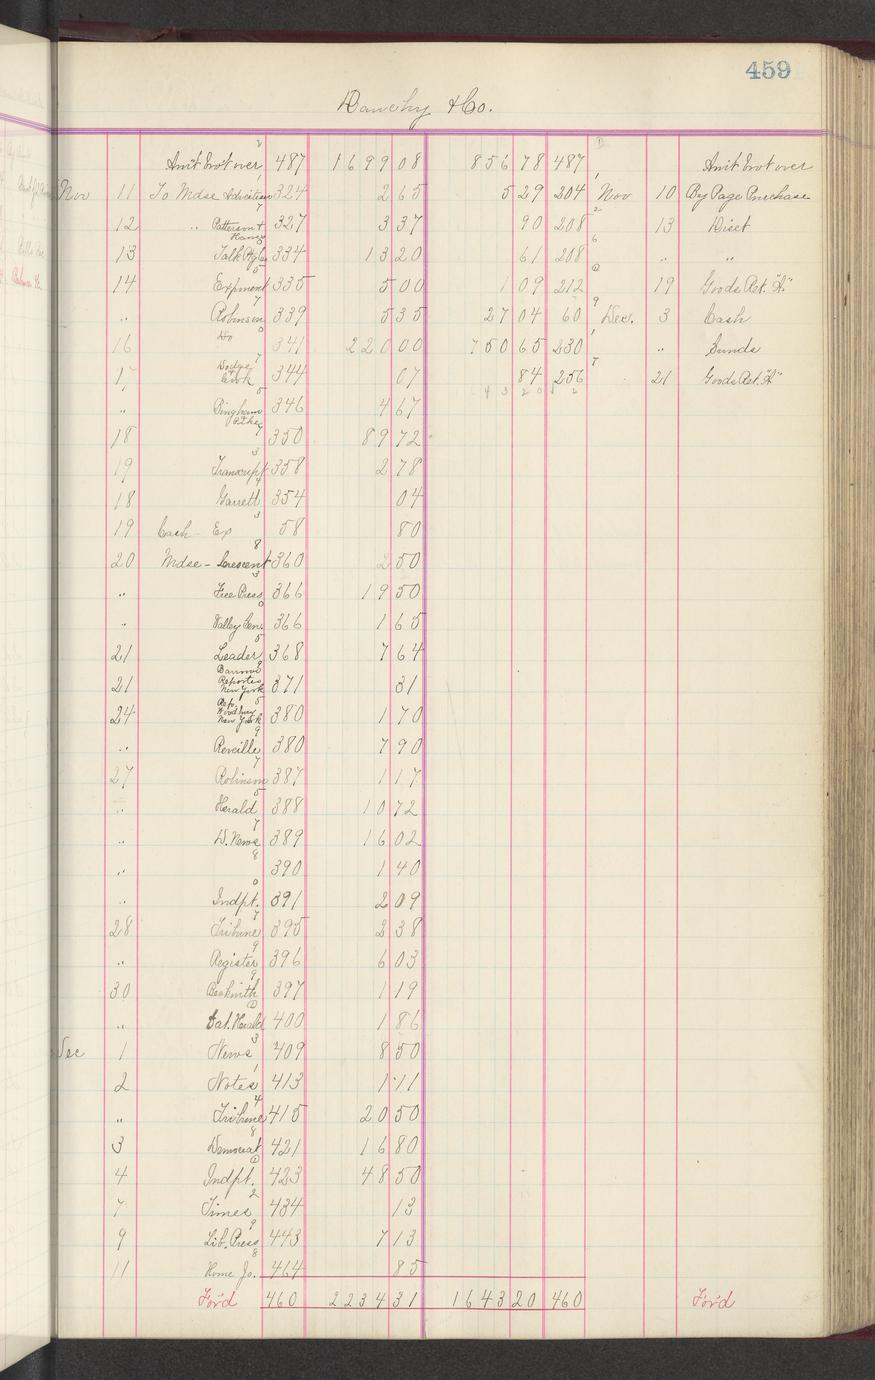 459
Dauchy & Co.
Am't bro't over 487 1699 08 856 78 487 Am't bro't over
Nov 11 To Mdse Advertiser 324 2 65 5 29 204 Nov 10 By Page Purchase
12 " Patterson & 327 3 37 90 208 13 Disct
13 334 13 20 61 208 " "
14 335 5 00 1 09 212 19 Goods Ret. "A"
" Robinson 339 5 35 27 04 60 Dec. 3 Cash
16 Do 341 220 00 750 65 230 " Sunds
17 Dodge & Cook 344 07 84 256 21 Goods Ret. "A"
" Bingham 346 4 67
18 350 89 72
19 Transcript 358 2 78
18 Garrett 354 04
19 Cash - Ex 58 80
20 Mdse - Crescent 360 2 50
" Free Press 366 19 50
" Valley 366 1 65
21 Leader 368 7 64
21 Reporter New York 371 31
24 New York 380 1 70
" Reveille 380 7 90
27 Robinson 387 1 17
" Herald 388 10 72
" D. News 389 16 02
" 390 1 40
" Indpt. 391 2 09
28 Tribune 395 2 38
" Register 396 6 03
30 Beckwith 397 1 19
" Sat. Herald 400 1 86
Dec 1 News 409 8 50
2 Notes 413 1 11
" Tribune 415 20 50
3 Democrat 421 16 80
4 Indpt. 423 48 50
7 Times 434 13
9 Lib. Press 443 7 13
11 Home Jo. 464 85
For'd 460 2234 31 1643 20 460 For'd